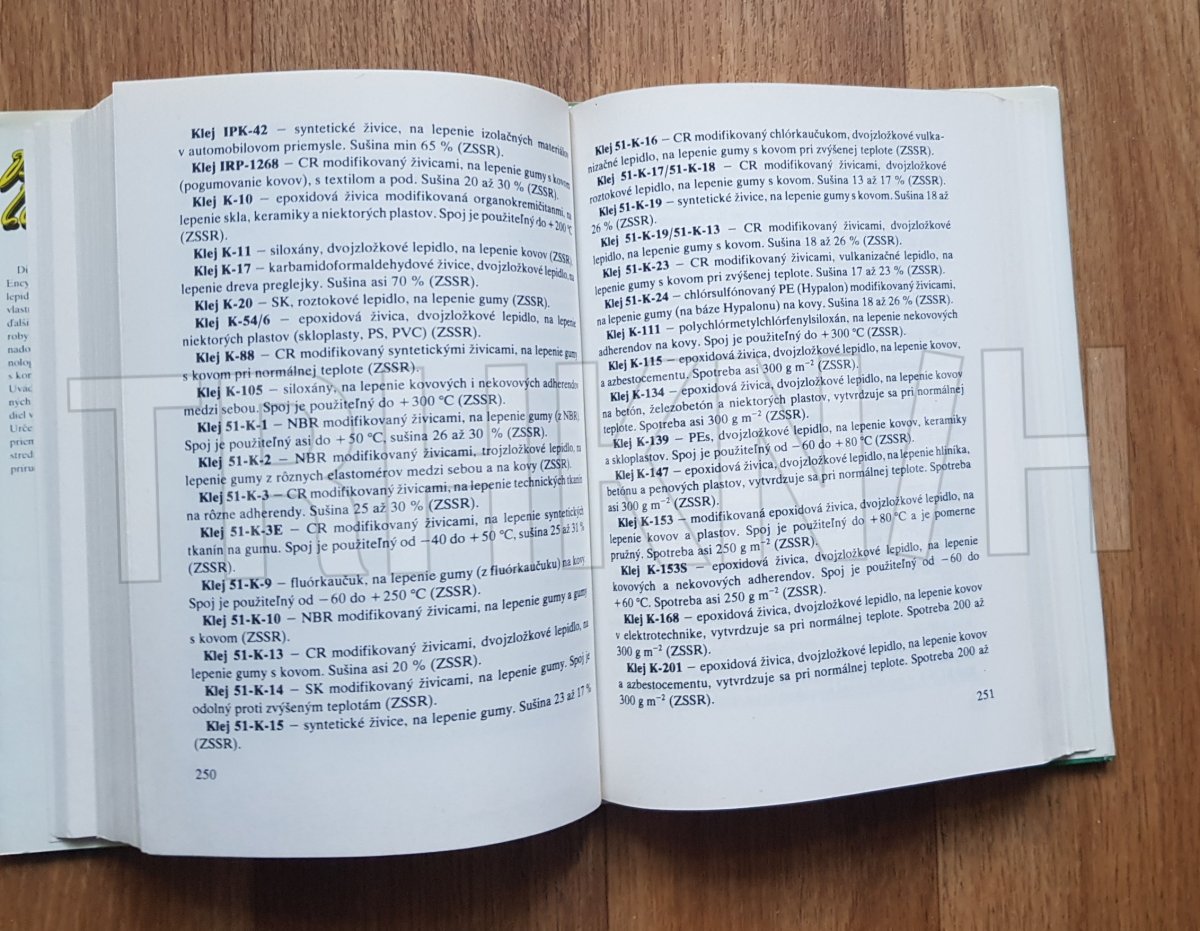 Di
Ency
lepid
vlast
ďalši
roby
nado
nolog
s kor
Uvac
nych
diel v
Urče
prien
stred
priru
Klej IPK-42 – syntetické živice, na lepenie izolačných materiálov
v automobilovom priemysle. Sušina min 65 % (ZSSR).
Klej IRP-1268 – CR modifikovaný živicami, na lepenie gumy s kovom
(pogumovanie kovov), s textilom a pod. Sušina 20 až 30 % (ZSSR).
Klej K-10 – epoxidová živica modifikovaná organokremičitanmi, na
lepenie skla, keramiky a niektorých plastov. Spoj je použiteľný do +200 °C
(ZSSR).
Klej K-11 – siloxány, dvojzložkové lepidlo, na lepenie kovov (ZSSR).
Klej K-17 – karbamidoformaldehydové živice, dvojzložkové lepidlo, na
lepenie dreva preglejky. Sušina asi 70 % (ZSSR).
Klej K-20 – SK, roztokové lepidlo, na lepenie gumy (ZSSR).
Klej K-54/6 – epoxidová živica, dvojzložkové lepidlo, na lepenie
niektorých plastov (skloplasty, PS, PVC) (ZSSR).
Klej K-88 – CR modifikovaný syntetickými živicami, na lepenie gumy
s kovom pri normálnej teplote (ZSSR).
Klej K-105 – siloxány, na lepenie kovových i nekovových adherendov
medzi sebou. Spoj je použiteľný do +300 °C (ZSSR).
Klej 51-K-1 – NBR modifikovaný živicami, na lepenie gumy (z NBR).
Spoj je použiteľný asi do +50 °C, sušina 26 až 30 % (ZSSR).
Klej 51-K-2 – NBR modifikovaný živicami, trojzložkové lepidlo, na
lepenie gumy z rôznych elastomérov medzi sebou a na kovy (ZSSR).
Klej 51-K-3 – CR modifikovaný živicami, na lepenie technických tkanín
na rôzne adherendy. Sušina 25 až 30 % (ZSSR).
Klej 51-K-3E – CR modifikovaný živicami, na lepenie syntetických
tkanín na gumu. Spoj je použiteľný od −40 do +50 °C, sušina 25 až 31 %
(ZSSR).
Klej 51-K-9 – fluórkaučuk, na lepenie gumy (z fluórkaučuku) na kovy.
Spoj je použiteľný od −60 do +250 °C (ZSSR).
Klej 51-K-10 – NBR modifikovaný živicami, na lepenie gumy a gumy
s kovom (ZSSR).
Klej 51-K-13 – CR modifikovaný živicami, dvojzložkové lepidlo, na
lepenie gumy s kovom. Sušina asi 20 % (ZSSR).
Klej 51-K-14 – SK modifikovaný živicami, na lepenie gumy. Spoj je
odolný proti zvýšeným teplotám (ZSSR).
Klej 51-K-15 – syntetické živice, na lepenie gumy. Sušina 23 až 17 %
(ZSSR).
250
Klej 51-K-16 – CR modifikovaný chlórkaučukom, dvojzložkové vulka-
nizačné lepidlo, na lepenie gumy s kovom pri zvýšenej teplote (ZSSR).
Klej 51-K-17/51-K-18 – CR modifikovaný živicami, dvojzložkové
roztokové lepidlo, na lepenie gumy s kovom. Sušina 13 až 17 % (ZSSR).
Klej 51-K-19 – syntetické živice, na lepenie gumy s kovom. Sušina 18 až
26 % (ZSSR).
Klej 51-K-19/51-K-13 – CR modifikovaný živicami, dvojzložkové
lepidlo, na lepenie gumy s kovom. Sušina 18 až 26 % (ZSSR).
Klej 51-K-23 – CR modifikovaný živicami, vulkanizačné lepidlo, na
lepenie gumy s kovom pri zvýšenej teplote. Sušina 17 až 23 % (ZSSR).
Klej 51-K-24 – chlórsulfónovaný PE (Hypalon) modifikovaný živicami,
na lepenie gumy (na báze Hypalonu) na kovy. Sušina 18 až 26 % (ZSSR).
Klej K-111 – polychlórmetylchlórfenylsiloxán, na lepenie nekovových
adherendov na kovy. Spoj je použiteľný do +300 °C (ZSSR).
Klej K-115 – epoxidová živica, dvojzložkové lepidlo, na lepenie kovov,
a azbestocementu. Spotreba asi 300 g m⁻² (ZSSR).
Klej K-134 – epoxidová živica, dvojzložkové lepidlo, na lepenie kovov
na betón, železobetón a niektorých plastov, vytvrdzuje sa pri normálnej
teplote. Spotreba asi 300 g m⁻² (ZSSR).
Klej K-139 – PEs, dvojzložkové lepidlo, na lepenie kovov, keramiky
a skloplastov. Spoj je použiteľný od −60 do +80 °C (ZSSR).
Klej K-147 – epoxidová živica, dvojzložkové lepidlo, na lepenie hliníka,
betónu a penových plastov, vytvrdzuje sa pri normálnej teplote. Spotreba
asi 300 g m⁻² (ZSSR).
Klej K-153 – modifikovaná epoxidová živica, dvojzložkové lepidlo, na
lepenie kovov a plastov. Spoj je použiteľný do +80 °C a je pomerne
pružný. Spotreba asi 250 g m⁻² (ZSSR).
Klej K-153S – epoxidová živica, dvojzložkové lepidlo, na lepenie
kovových a nekovových adherendov. Spoj je použiteľný od −60 do
+60 °C. Spotreba asi 250 g m⁻² (ZSSR).
Klej K-168 – epoxidová živica, dvojzložkové lepidlo, na lepenie kovov
v elektrotechnike, vytvrdzuje sa pri normálnej teplote. Spotreba 200 až
300 g m⁻² (ZSSR).
Klej K-201 – epoxidová živica, dvojzložkové lepidlo, na lepenie kovov
a azbestocementu, vytvrdzuje sa pri normálnej teplote. Spotreba 200 až
300 g m⁻² (ZSSR).
251